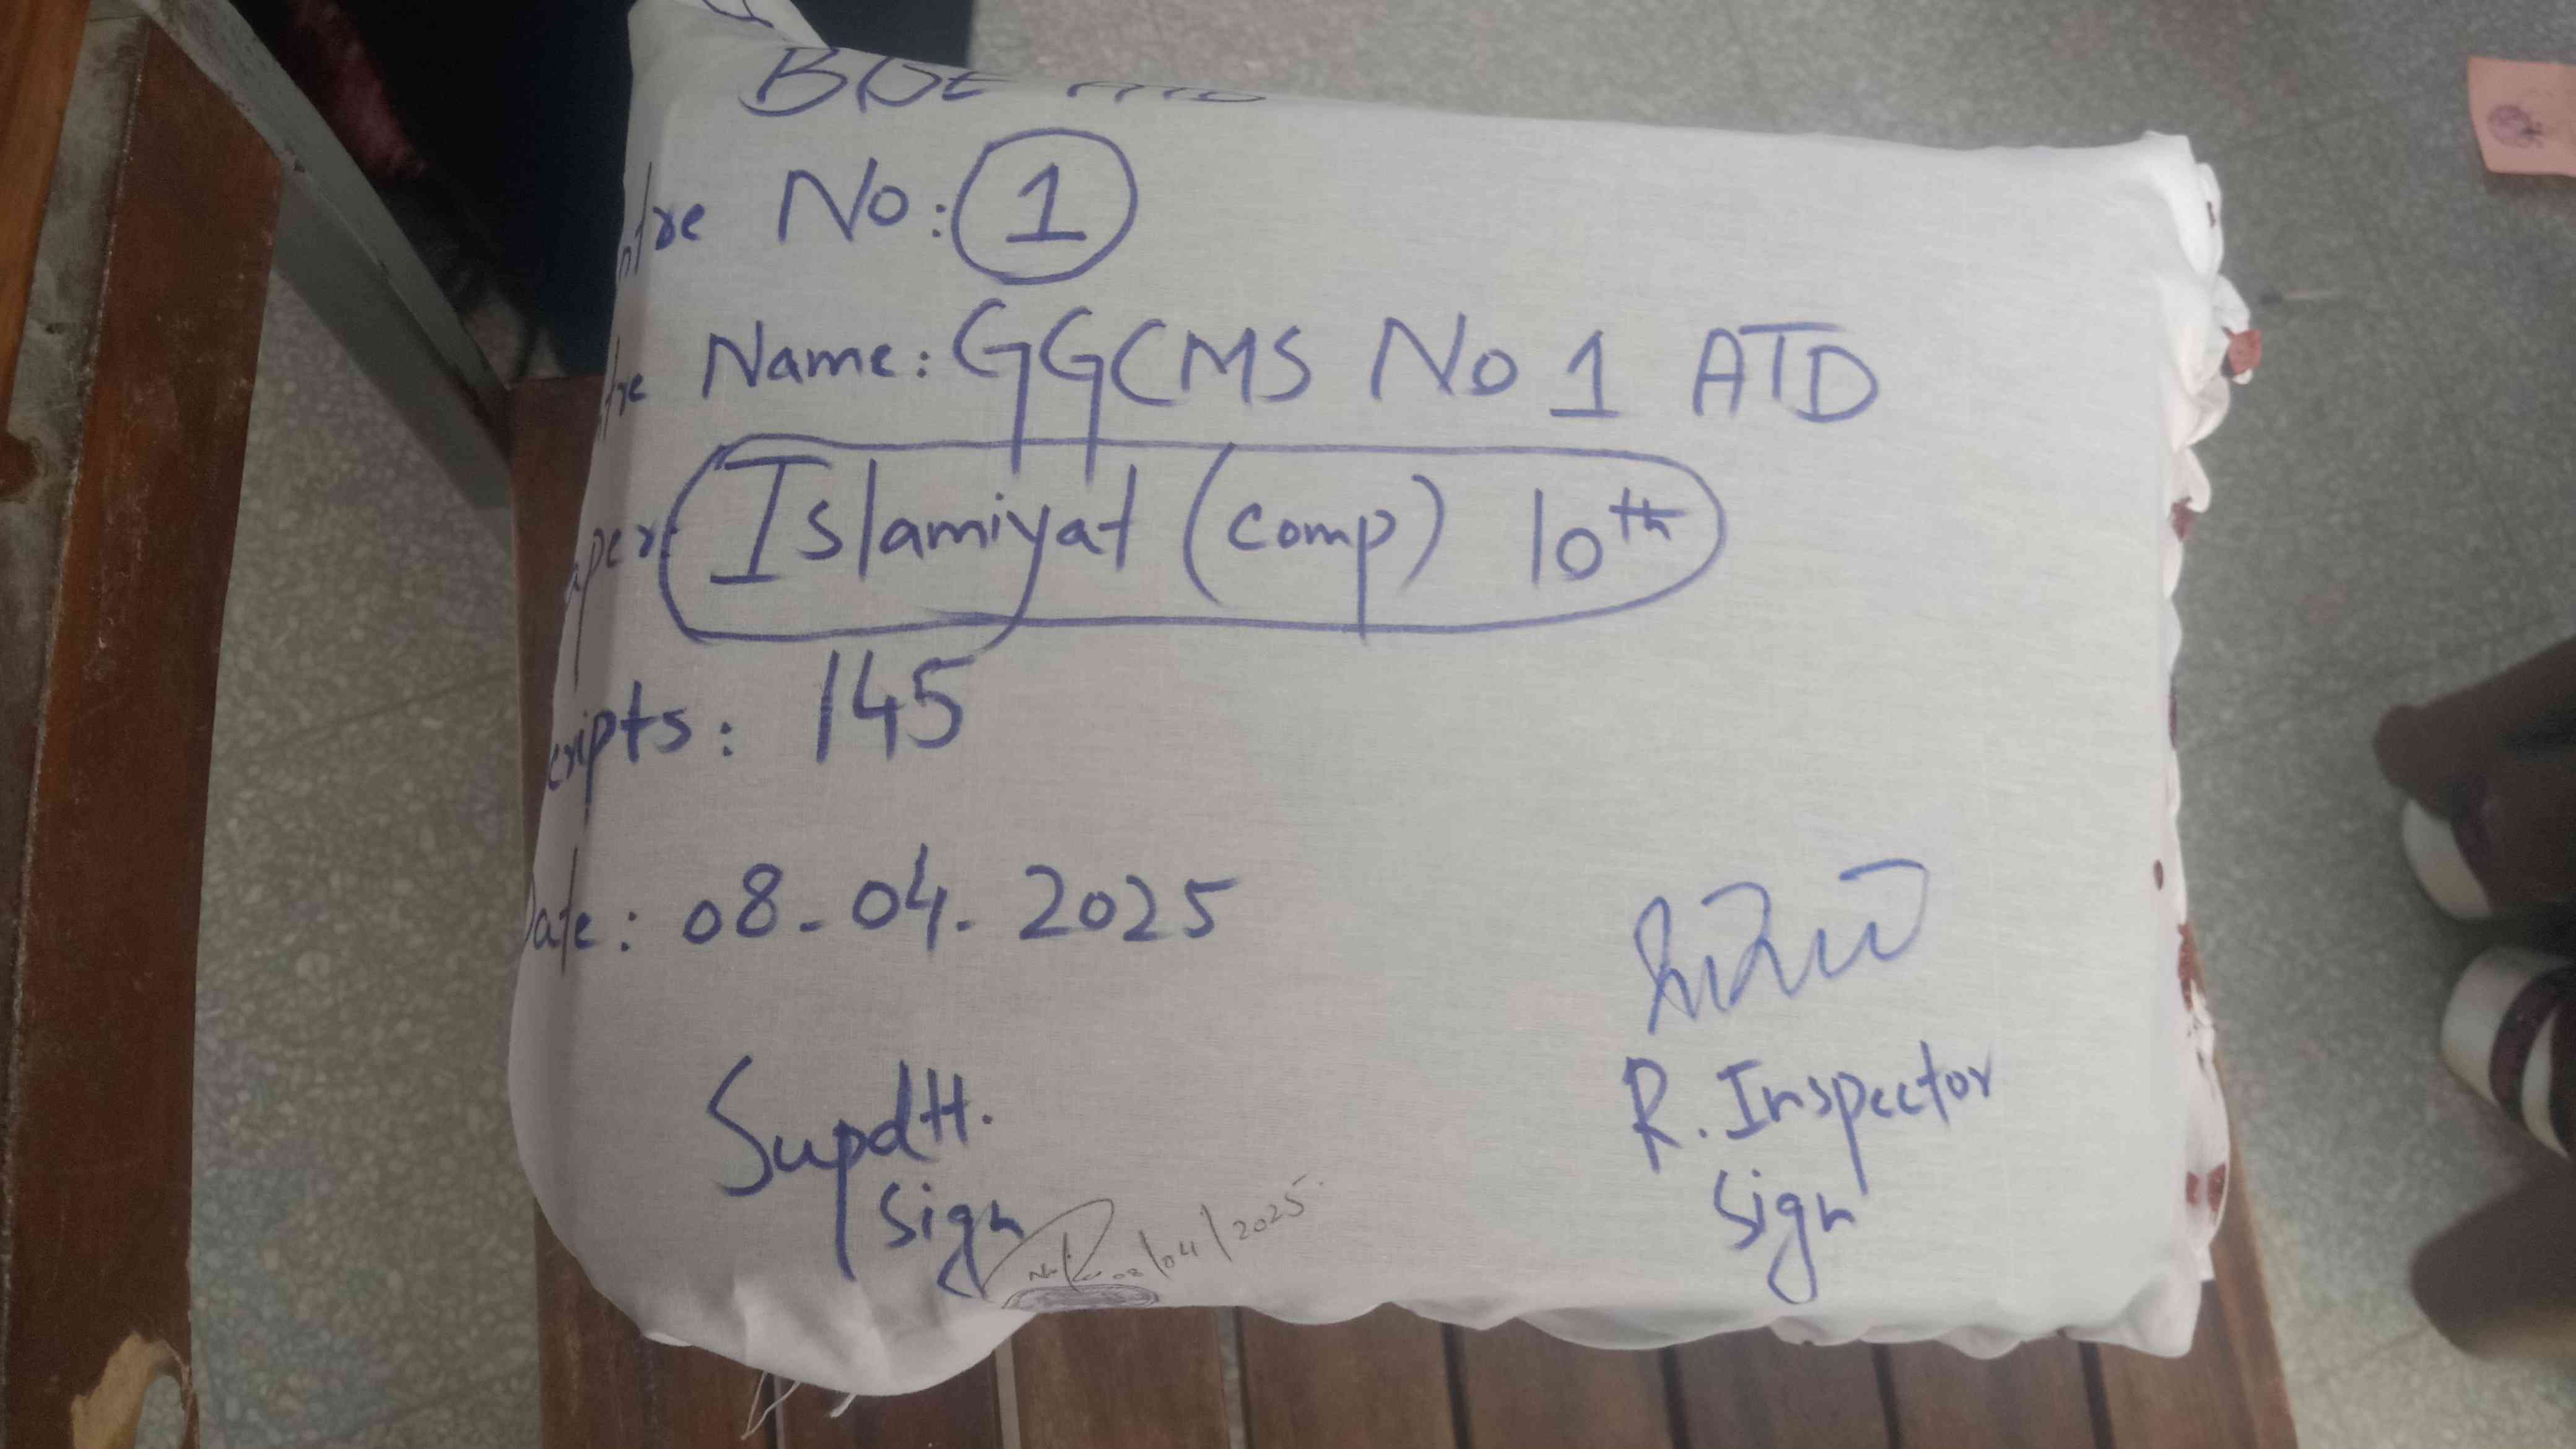 BISE ATD
ntre No: 1
tre Name: GGCMS No 1 ATD
aper: Islamiyat (comp) 10th
cripts: 145
Date: 08-04-2025
Supdtt.
Sign
R. Inspector
Sign
08/04/2025